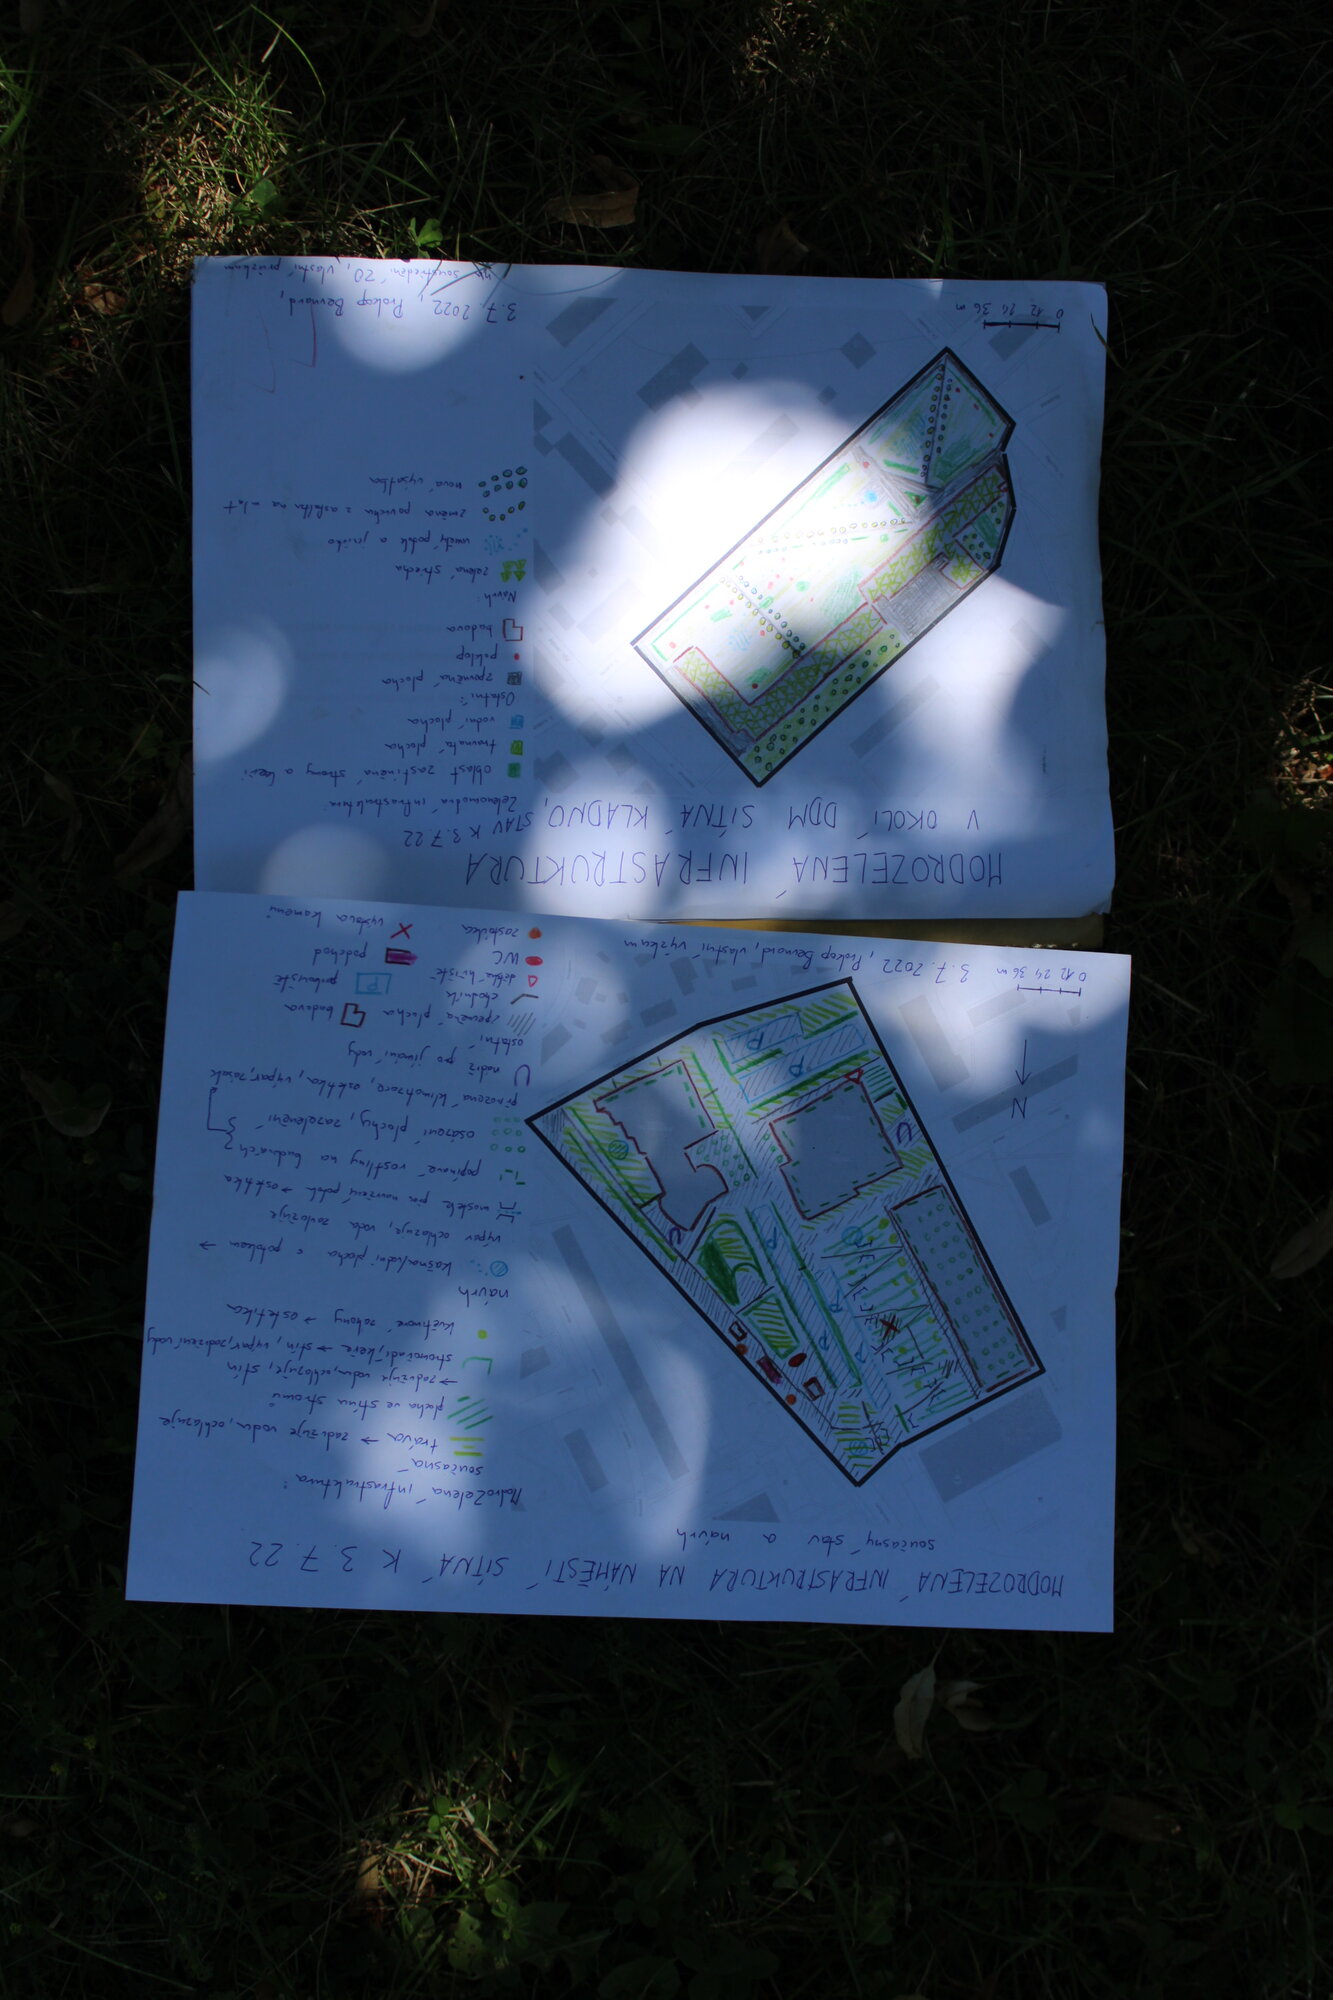 MODROZELENÁ INFRASTRUKTURA NA NÁMĚSTÍ SÍTNÁ K 3.7.22
současný stav a návrh
Modrozelená infrastruktura:
současná
tráva → zadržuje vodu, ochlazuje
plocha ve stínu stromů
→ zadržuje vodu, ochlazuje, stín
stromořadí, keře → stín, výpar, zadržení vody
květinové záhony → estetika
návrh
kašna/vodní plocha s potokem →
výpar ochlazuje, voda zavlažuje
mostek přes navržený potok → estetika
popínavé rostliny na budovách
osázení plochy, zazelenění
přirozená klimatizace, estetika, výpar,
nádrž pro jímání vody
ostatní
zpevněná plocha
budova
chodník
parkoviště
dětské hřiště
WC
podchod
zastávka
výstava kamenů
N
P
P
P
P
P
P
0 12 24 36 m
3.7.2022, Prokop Bernard, vlastní výzkum
MODROZELENÁ INFRASTRUKTURA
V OKOLÍ DDM SÍTNÁ KLADNO, STAV K 3.7.22
Zelenomodrá infrastruktura:
oblast zastíněná stromy a keři
travnatá plocha
vodní plocha
Ostatní:
zpevněná plocha
poklop
budova
Návrh:
zelená střecha
umělý potok a jezírko
změna povrchu z asfaltu na mlat
nová výsadba
0 12 24 36 m
3.7.2022, Prokop Bernard,
soustředění ZO, vlastní průzkum